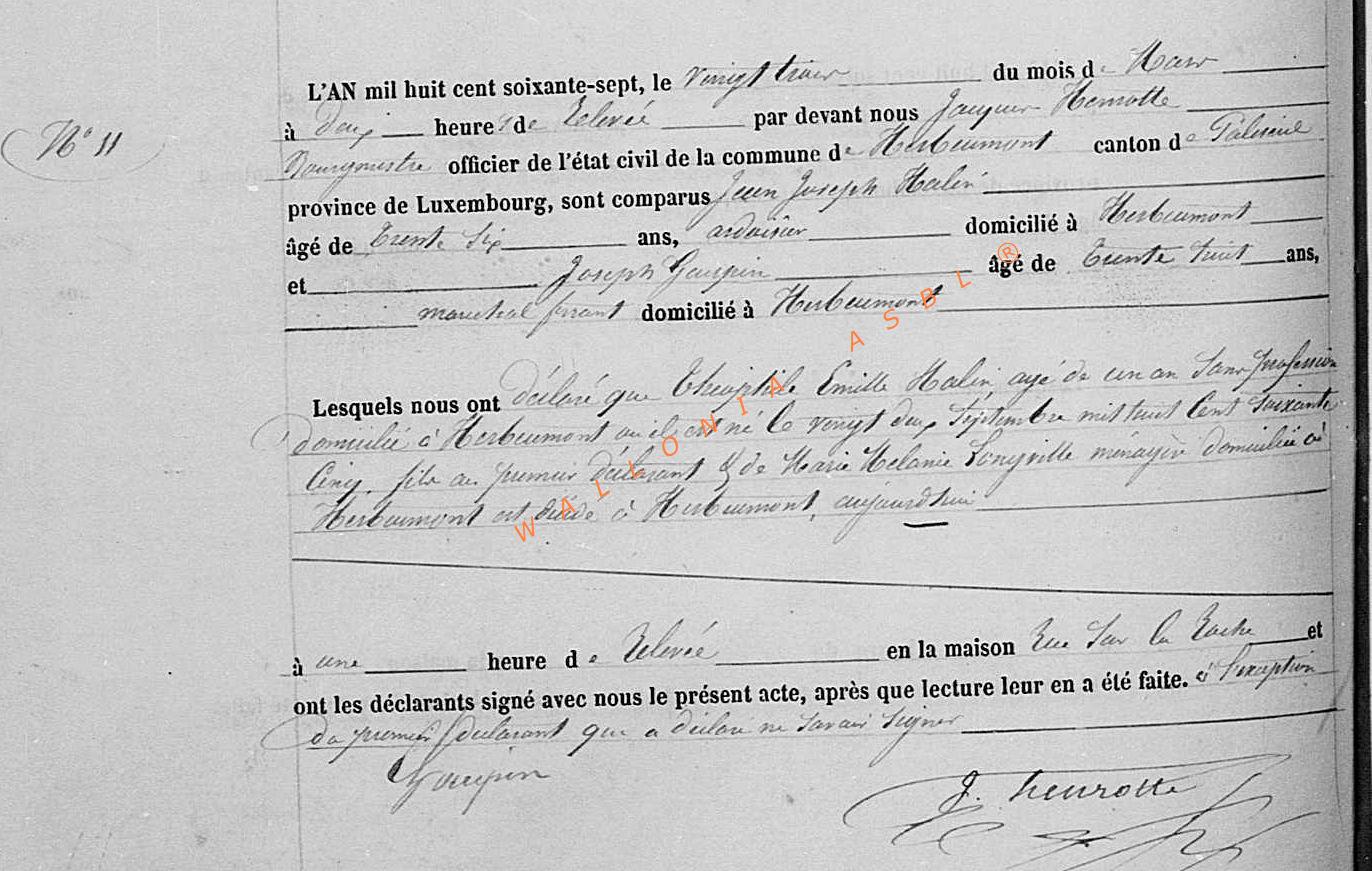 N° 11
L'AN mil huit cent soixante-sept, le vingt trois du mois de Mars
à Deux heures de Relevée par devant nous Jacques Henrotte
Bourgmestre officier de l'état civil de la commune de Herbeumont canton de Paliseul
province de Luxembourg, sont comparus Jean Joseph Halin
âgé de trente Six ans, ardoisier domicilié à Herbeumont
et Joseph Goupin âgé de trente huit ans,
marechal ferrant domicilié à Herbeumont
Lesquels nous ont déclaré que Théophile Emille Halin agé de un an Sans profession
domicilié à Herbeumont ou il est né le vingt deux Septembre mil huit Cent Soixante
Cinq, fils du premier déclarant & de Marie Melanie Longville ménagère domiciliée à
Herbeumont est décédé à Herbeumont, aujourd'hui
à une heure de Relevée en la maison Rue Sur la Roche et
ont les déclarants signé avec nous le présent acte, après que lecture leur en a été faite. à l'exception
du premier déclarant que a déclaré ne Savoir Signer
Goupin
J. henrotte
WALLONIA ASBL ®